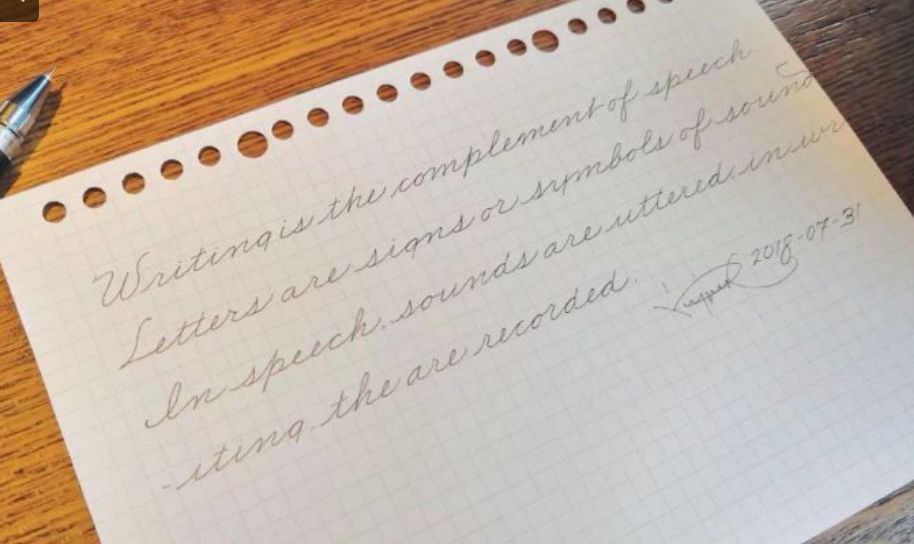 Writing is the complement of speech.
Letters are signs or symbols of sound
In speech, sounds are uttered, in wr
-iting, the are recorded.
2018-07-31